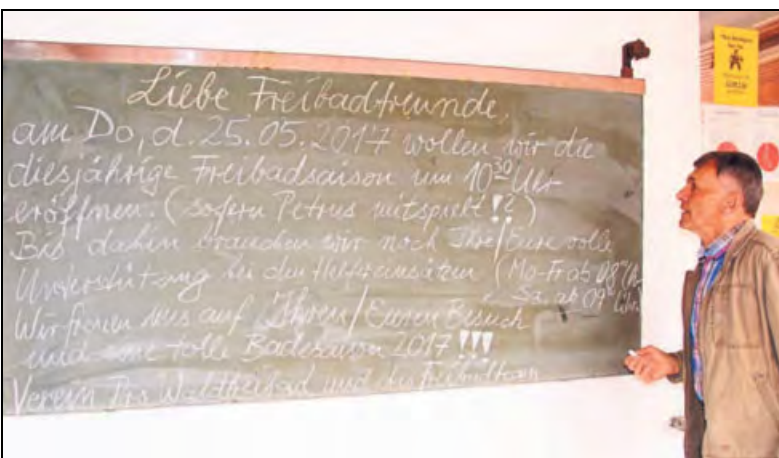 Liebe Freibadfreunde,
am Do, d. 25.05.2017 wollen wir die
diesjährige Freibadsaison um 10³⁰ Uhr
eröffnen. (sofern Petrus mitspielt!?)
Bis dahin brauchen wir noch Ihre/Eure volle
Unterstützung bei den Helfereinsätzen (Mo-Fr ab 08°°
Sa. ab 09°° Uhr)
Wir freuen uns auf Ihren/Euren Besuch
und eine tolle Badesaison 2017!!!
Verein Pro Waldfreibad und das Freibadteam